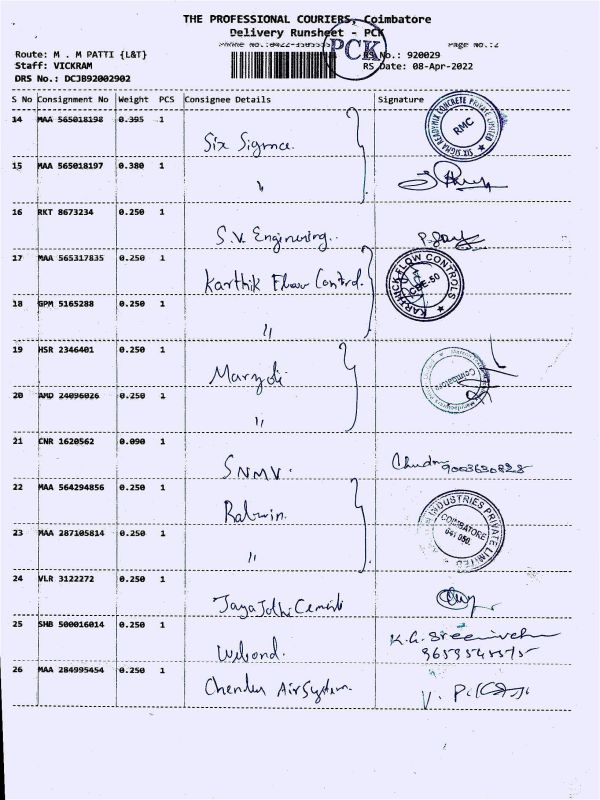 THE PROFESSIONAL COURIERS, Coimbatore
Delivery Runsheet - PCK
Page No.:2
PCK
Route: M . M PATTI {L&T}
RS No.: 920029
Staff: VICKRAM
RS Date: 08-Apr-2022
DRS No.: DCJB92002902
S No Consignment No Weight PCS Consignee Details Signature
14 MAA 565018198 0.395 1 Six Sigma
SIX SIGMA READYMIX CONCRETE PRIVATE LIMITED RMC
15 MAA 565018197 0.380 1 "
16 RKT 8673234 0.250 1 S.V. Enginering
17 MAA 565317835 0.250 1 Karthik Flow Control.
KARTHICK FLOW CONTROLS CBE-50
18 GPM 5165288 0.250 1 "
19 HSR 2346401 0.250 1
Coimbatore
20 AMD 24096026 0.250 1 "
21 CNR 1620562 0.090 1 SNMV. 9003630828
22 MAA 564294856 0.250 1
INDUSTRIES PRIVATE LIMITED COIMBATORE 641 050.
23 MAA 287105814 0.250 1 "
24 VLR 3122272 0.250 1 JayaJothi Cement
25 SHB 500016014 0.250 1
26 MAA 284995454 0.250 1 Air System.